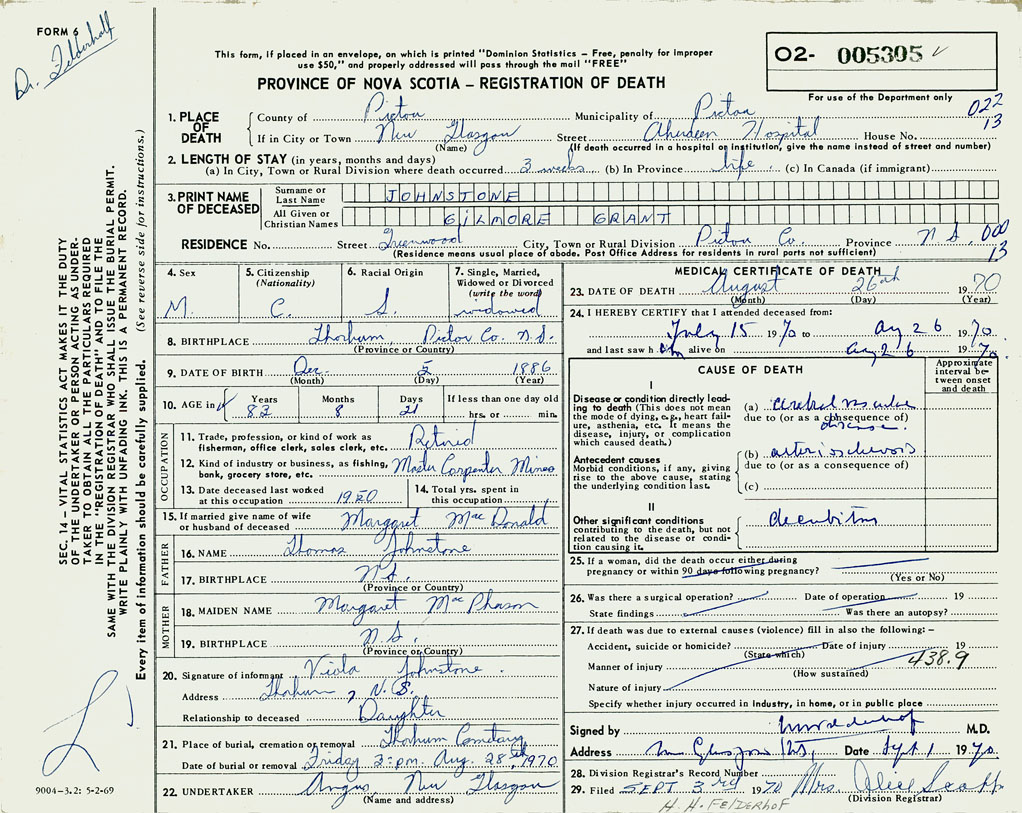 FORM 6
Dr. Felderhof
This form, if placed in an envelope, on which is printed "Dominion Statistics – Free, penalty for improper
use $50," and properly addressed will pass through the mail "FREE"
PROVINCE OF NOVA SCOTIA – REGISTRATION OF DEATH
02- 005305
For use of the Department only
022
13
1. PLACE OF DEATH
County of Pictou Municipality of Pictou
If in City or Town New Glasgow Street Aberdeen Hospital House No.
(Name) (If death occurred in a hospital or institution, give the name instead of street and number)
2. LENGTH OF STAY (in years, months and days)
(a) In City, Town or Rural Division where death occurred 3 weeks (b) In Province life (c) In Canada (if immigrant)
3. PRINT NAME OF DECEASED
Surname or Last Name JOHNSTONE
All Given or Christian Names GILMORE GRANT
RESIDENCE No. Street Greenwood City, Town or Rural Division Pictou Co. Province N S. 000
(Residence means usual place of abode. Post Office Address for residents in rural parts not sufficient) 13
4. Sex M.
5. Citizenship (Nationality) C.
6. Racial Origin S.
7. Single, Married, Widowed or Divorced (write the word) widowed
8. BIRTHPLACE Thorburn, Pictou Co. N.S.
(Province or Country)
9. DATE OF BIRTH Dec. 5 1886
(Month) (Day) (Year)
10. AGE in Years 83 Months 8 Days 21 If less than one day old hrs. or min.
OCCUPATION
11. Trade, profession, or kind of work as fisherman, office clerk, sales clerk, etc. Retired
12. Kind of industry or business, as fishing, bank, grocery store, etc. Master Carpenter Mines
13. Date deceased last worked at this occupation
14. Total yrs. spent in this occupation
15. If married give name of wife or husband of deceased Margaret MacDonald
FATHER
16. NAME Thomas Johnstone
17. BIRTHPLACE N.S.
(Province or Country)
MOTHER
18. MAIDEN NAME Margaret MacPherson
19. BIRTHPLACE N.S.
(Province or Country)
20. Signature of informant Viola Johnstone.
Address Thorburn, N.S.
Relationship to deceased Daughter
21. Place of burial, cremation or removal Thorburn Cemetary
Date of burial or removal Friday 2:pm. Aug. 28th, 1970
22. UNDERTAKER Angus, New Glasgow
(Name and address)
MEDICAL CERTIFICATE OF DEATH
23. DATE OF DEATH August 26th 1970
(Month) (Day) (Year)
24. I HEREBY CERTIFY that I attended deceased from:
July 15 1970 to Aug 26 1970
and last saw him alive on Aug 26 1970.
CAUSE OF DEATH
Approximate interval between onset and death
I
Disease or condition directly leading to death (This does not mean the mode of dying, e.g., heart failure, asthenia, etc. It means the disease, injury, or complication which caused death.)
(a) cerebral vascular
due to (or as a consequence of)
disease.
Antecedent causes
Morbid conditions, if any, giving rise to the above cause, stating the underlying condition last.
(b) arteriosclerosis
due to (or as a consequence of)
(c)
II
Other significant conditions contributing to the death, but not related to the disease or condition causing it.
decubitus
25. If a woman, did the death occur either during
pregnancy or within 90 days following pregnancy?
(Yes or No)
26. Was there a surgical operation? Date of operation 19
State findings Was there an autopsy?
27. If death was due to external causes (violence) fill in also the following:–
Accident, suicide or homicide? Date of injury 19
(State which) 438.9
Manner of injury
(How sustained)
Nature of injury
Specify whether injury occurred in industry, in home, or in public place
Signed by HH Felderhof M.D.
Address New Glasgow NS, Date Sept 1 1970.
28. Division Registrar's Record Number
29. Filed SEPT 3rd 1970 Mrs. Alice
(Division Registrar)
H. H. FELDERHOF
SEC. 14 – VITAL STATISTICS ACT MAKES IT THE DUTY
OF THE UNDERTAKER OR PERSON ACTING AS UNDER-
TAKER TO OBTAIN ALL THE PARTICULARS REQUIRED
IN THE "REGISTRATION OF DEATH" AND TO FILE THE
SAME WITH THE DIVISION REGISTRAR WHO SHALL ISSUE THE BURIAL PERMIT.
WRITE PLAINLY WITH UNFADING INK. THIS IS A PERMANENT RECORD.
Every item of information should be carefully supplied. (See reverse side for instructions.)
9004-3.2: 5-2-69